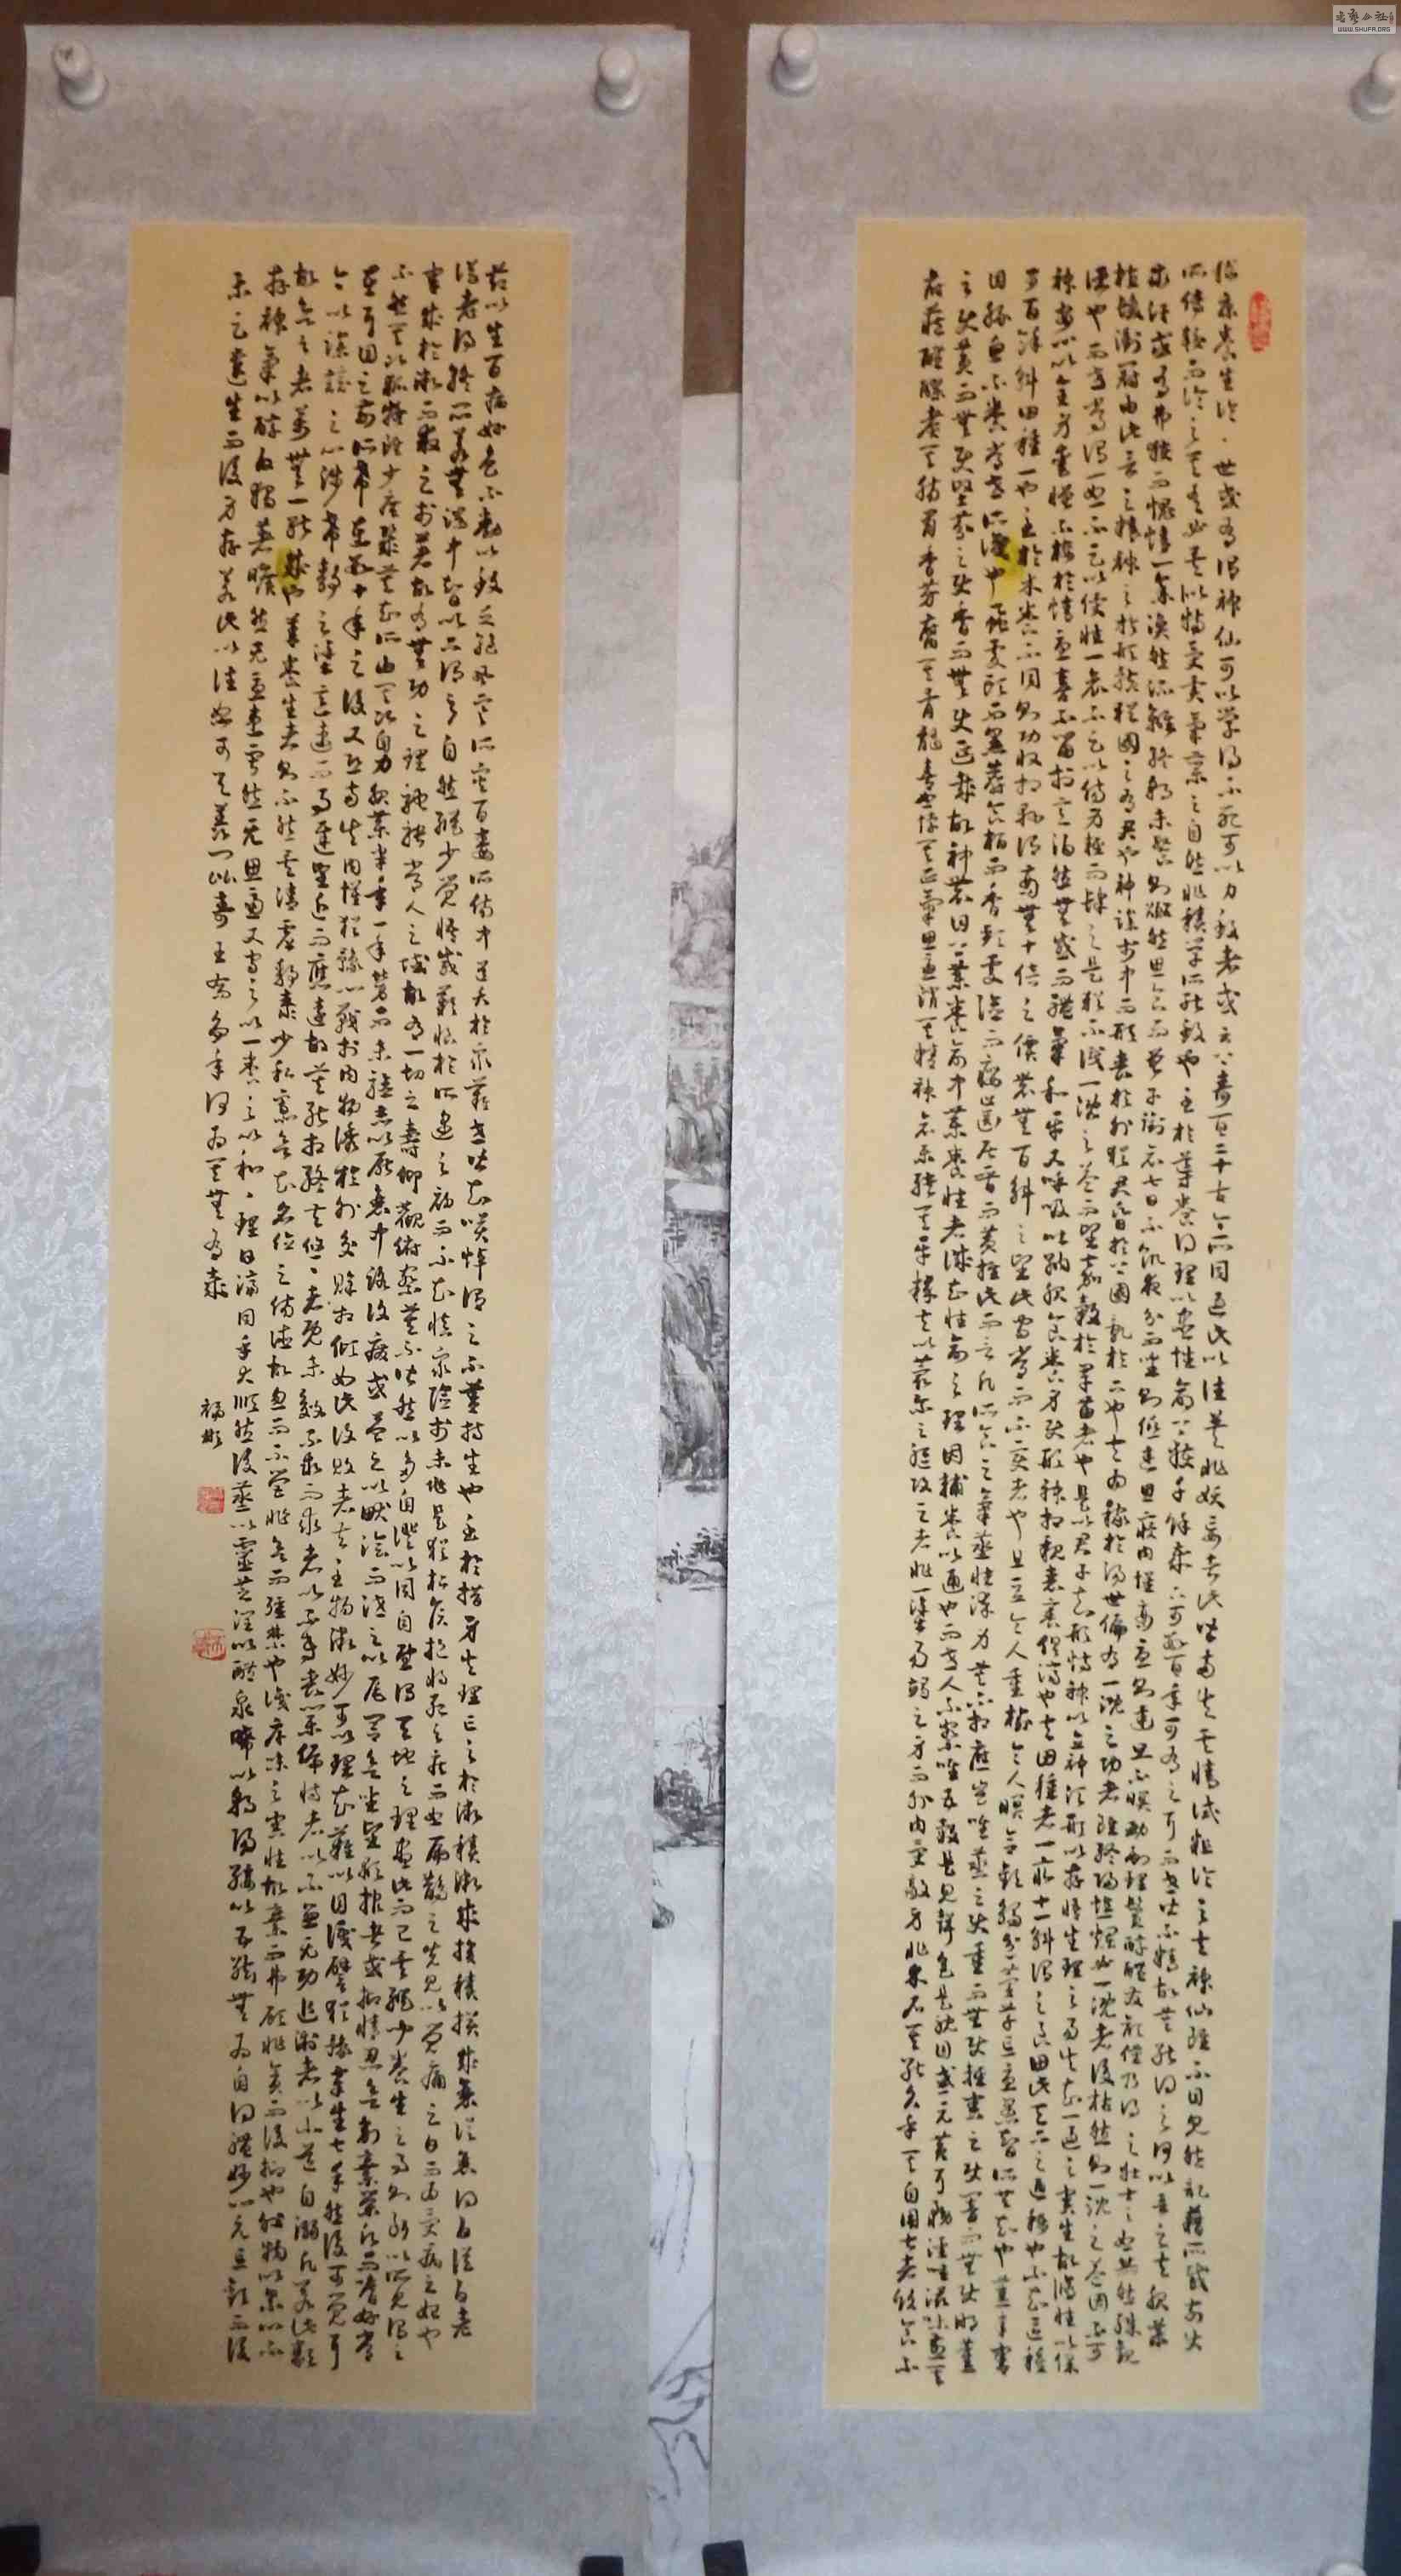 嵇康養生論、世或有謂神仙可以學得不死可以力致者或云上壽百二十古今所同過此以往莫非妖妄者此皆兩失其情試粗論之夫神仙雖不目見然記籍所載前史
所傳較而論之其有必矣似特受異氣稟之自然非積學所能致也至於導養得理以盡性命上獲千餘歲下可數百年可有之耳而世皆不精故莫能得之何以言之夫服藥
求汗或有弗獲而愧情一集渙然流離終朝未餐則嚻然思食而曾子銜哀七日不飢夜分而坐則低迷思寢內懷殷憂則達旦不瞑勁刷理鬢醇醴發顏僅乃得之壯士之怒赫然殊觀
植髮衝冠由此言之精神之於形骸猶國之有君也神躁於中而形喪於外猶君昏於上國亂於下也夫為稼於湯世偏有一溉之功者雖終歸燋爛必一溉者後枯然則一溉之益固不可
誣也而世常謂一怒不足以侵性一哀不足以傷身輕而肆之是猶不識一溉之益而望嘉穀於旱苗者也是以君子知形恃神以立神須形以存悟生理之易失知一過之害生故脩性以保
神安心以全身愛憎不棲於情憂喜不留於意泊然無感而體氣和平又呼吸吐納服食養身使形神相親表裏俱濟也夫田種者一畝十斛謂之良田此天下之通稱也不知區種
可百餘斛田種一也至於樹養不同則功收相懸謂商無十倍之價農無百斛之望此守常而不變者也且豆令人重榆令人瞑合歡蠲忿萱草忘憂愚智所共知也薰辛害
目豚魚不養常世所識也虱處頭而黑麝食柏而香頸處險而癭齒居晉而黃推此而言凡所食之氣蒸性染身莫不相應豈唯蒸之使重而無使輕害之使闇而無使明薰
之使黃而無使堅芬之使香而無使延哉故神農曰上藥養命中藥養性者誠知性命之理因輔養以通也而世人不察唯五穀是見聲色是耽目惑玄黃耳務淫哇滋味煎其
府藏醴醪煮其腸胃香芳腐其骨髓喜怒悖其正氣思慮消其精神哀樂殃其平粹夫以蕞爾之軀攻之者非一塗易竭之身而外內受敵身非木石其能久乎其自用甚者飲食不
節以生百病好色不勌以致乏絕風寒所災百毒所傷中道夭於眾難世皆知笑悼謂之不善持生也至於措身失理亡之於微積微成損積損成衰從衰得白從白得老
從老得終悶若無端中智以下謂之自然縱少覺悟咸歎恨於所遇之初而不知慎眾險於未兆是猶桓侯抱將死之疾而怒扁鵲之先見以覺痛之日而為受病之始也
害成於微而救之於著故有無功之理馳騁常人之域故有一切之壽仰觀俯察莫不皆然以多自證以同自慰謂天地之理盡此而已矣縱少養生之事則斷以所見謂之
不然其次狐疑雖少庶幾莫知所由其次自力服藥半年一年勞而未驗志以厭衰中路復廢或益之以畎澮而洩之以尾閭欲坐望顯報者或抑情忍欲割棄榮願而嗜好常
在耳目之前所希在數十年之後又恐兩失內懷猶豫心戰於內物誘於外交賒相傾如此復敗者夫至物微妙可以理知難以目識譬猶豫章生七年然後可覺耳
今以躁競之心涉希靜之塗意速而事遲望近而應遠故莫能相終夫悠、者既未效不求而求者以不專喪業偏恃者以不兼無功追術者以小道自溺凡若此類
故欲之者萬無一能成也善養生者則不然矣清虛靜泰少私寡欲知名位之傷德故忽而不營非欲而強禁也識厚味之害性故棄而弗顧非貪而後抑也外物以累心不
存神氣以醇白獨著曠然无憂患寂然无思慮又守之以一養之以和、理日濟同乎大順然後蒸以靈芝潤以醴泉晞以朝陽綏以五絃無為自得體妙心玄忘歡而後
樂足遺生而後身存若此以往庶可與羨門比壽王喬爭年何為其無有哉
福彬
WWW.SHUFA.ORG